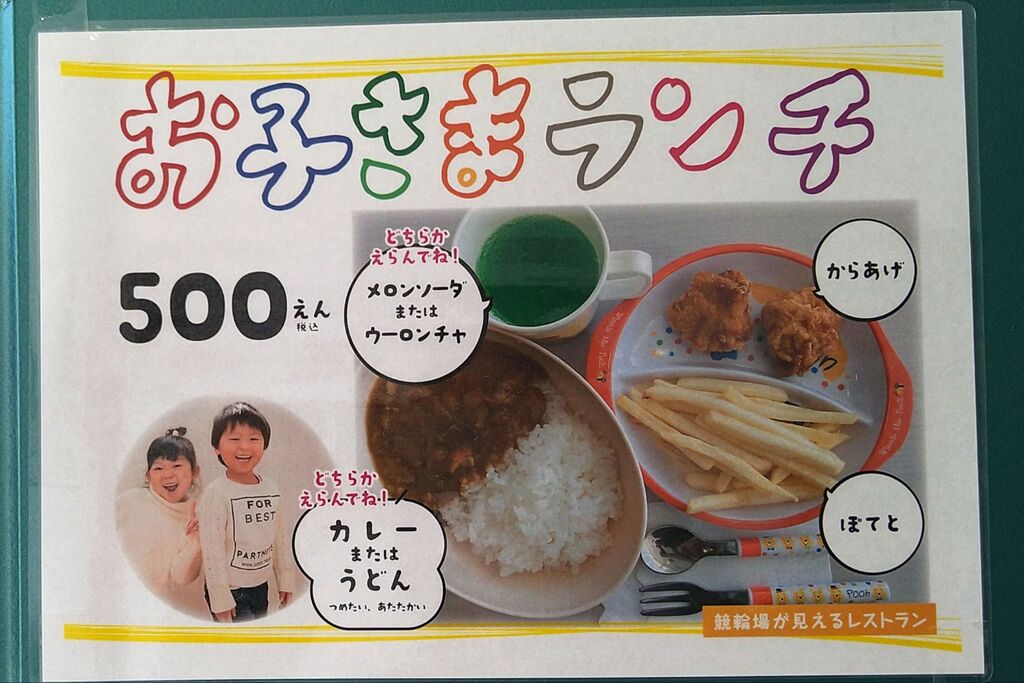 お子さまランチ
500えん
税込
どちらか
えらんでね!
メロンソーダ
または
ウーロンチャ
からあげ
Winnie the Pooh
Winnie the Pooh
FOR
BEST
PARTNER
どちらか
えらんでね!
カレー
または
うどん
つめたい、あたたかい
ぽてと
Pooh
競輪場が見えるレストラン